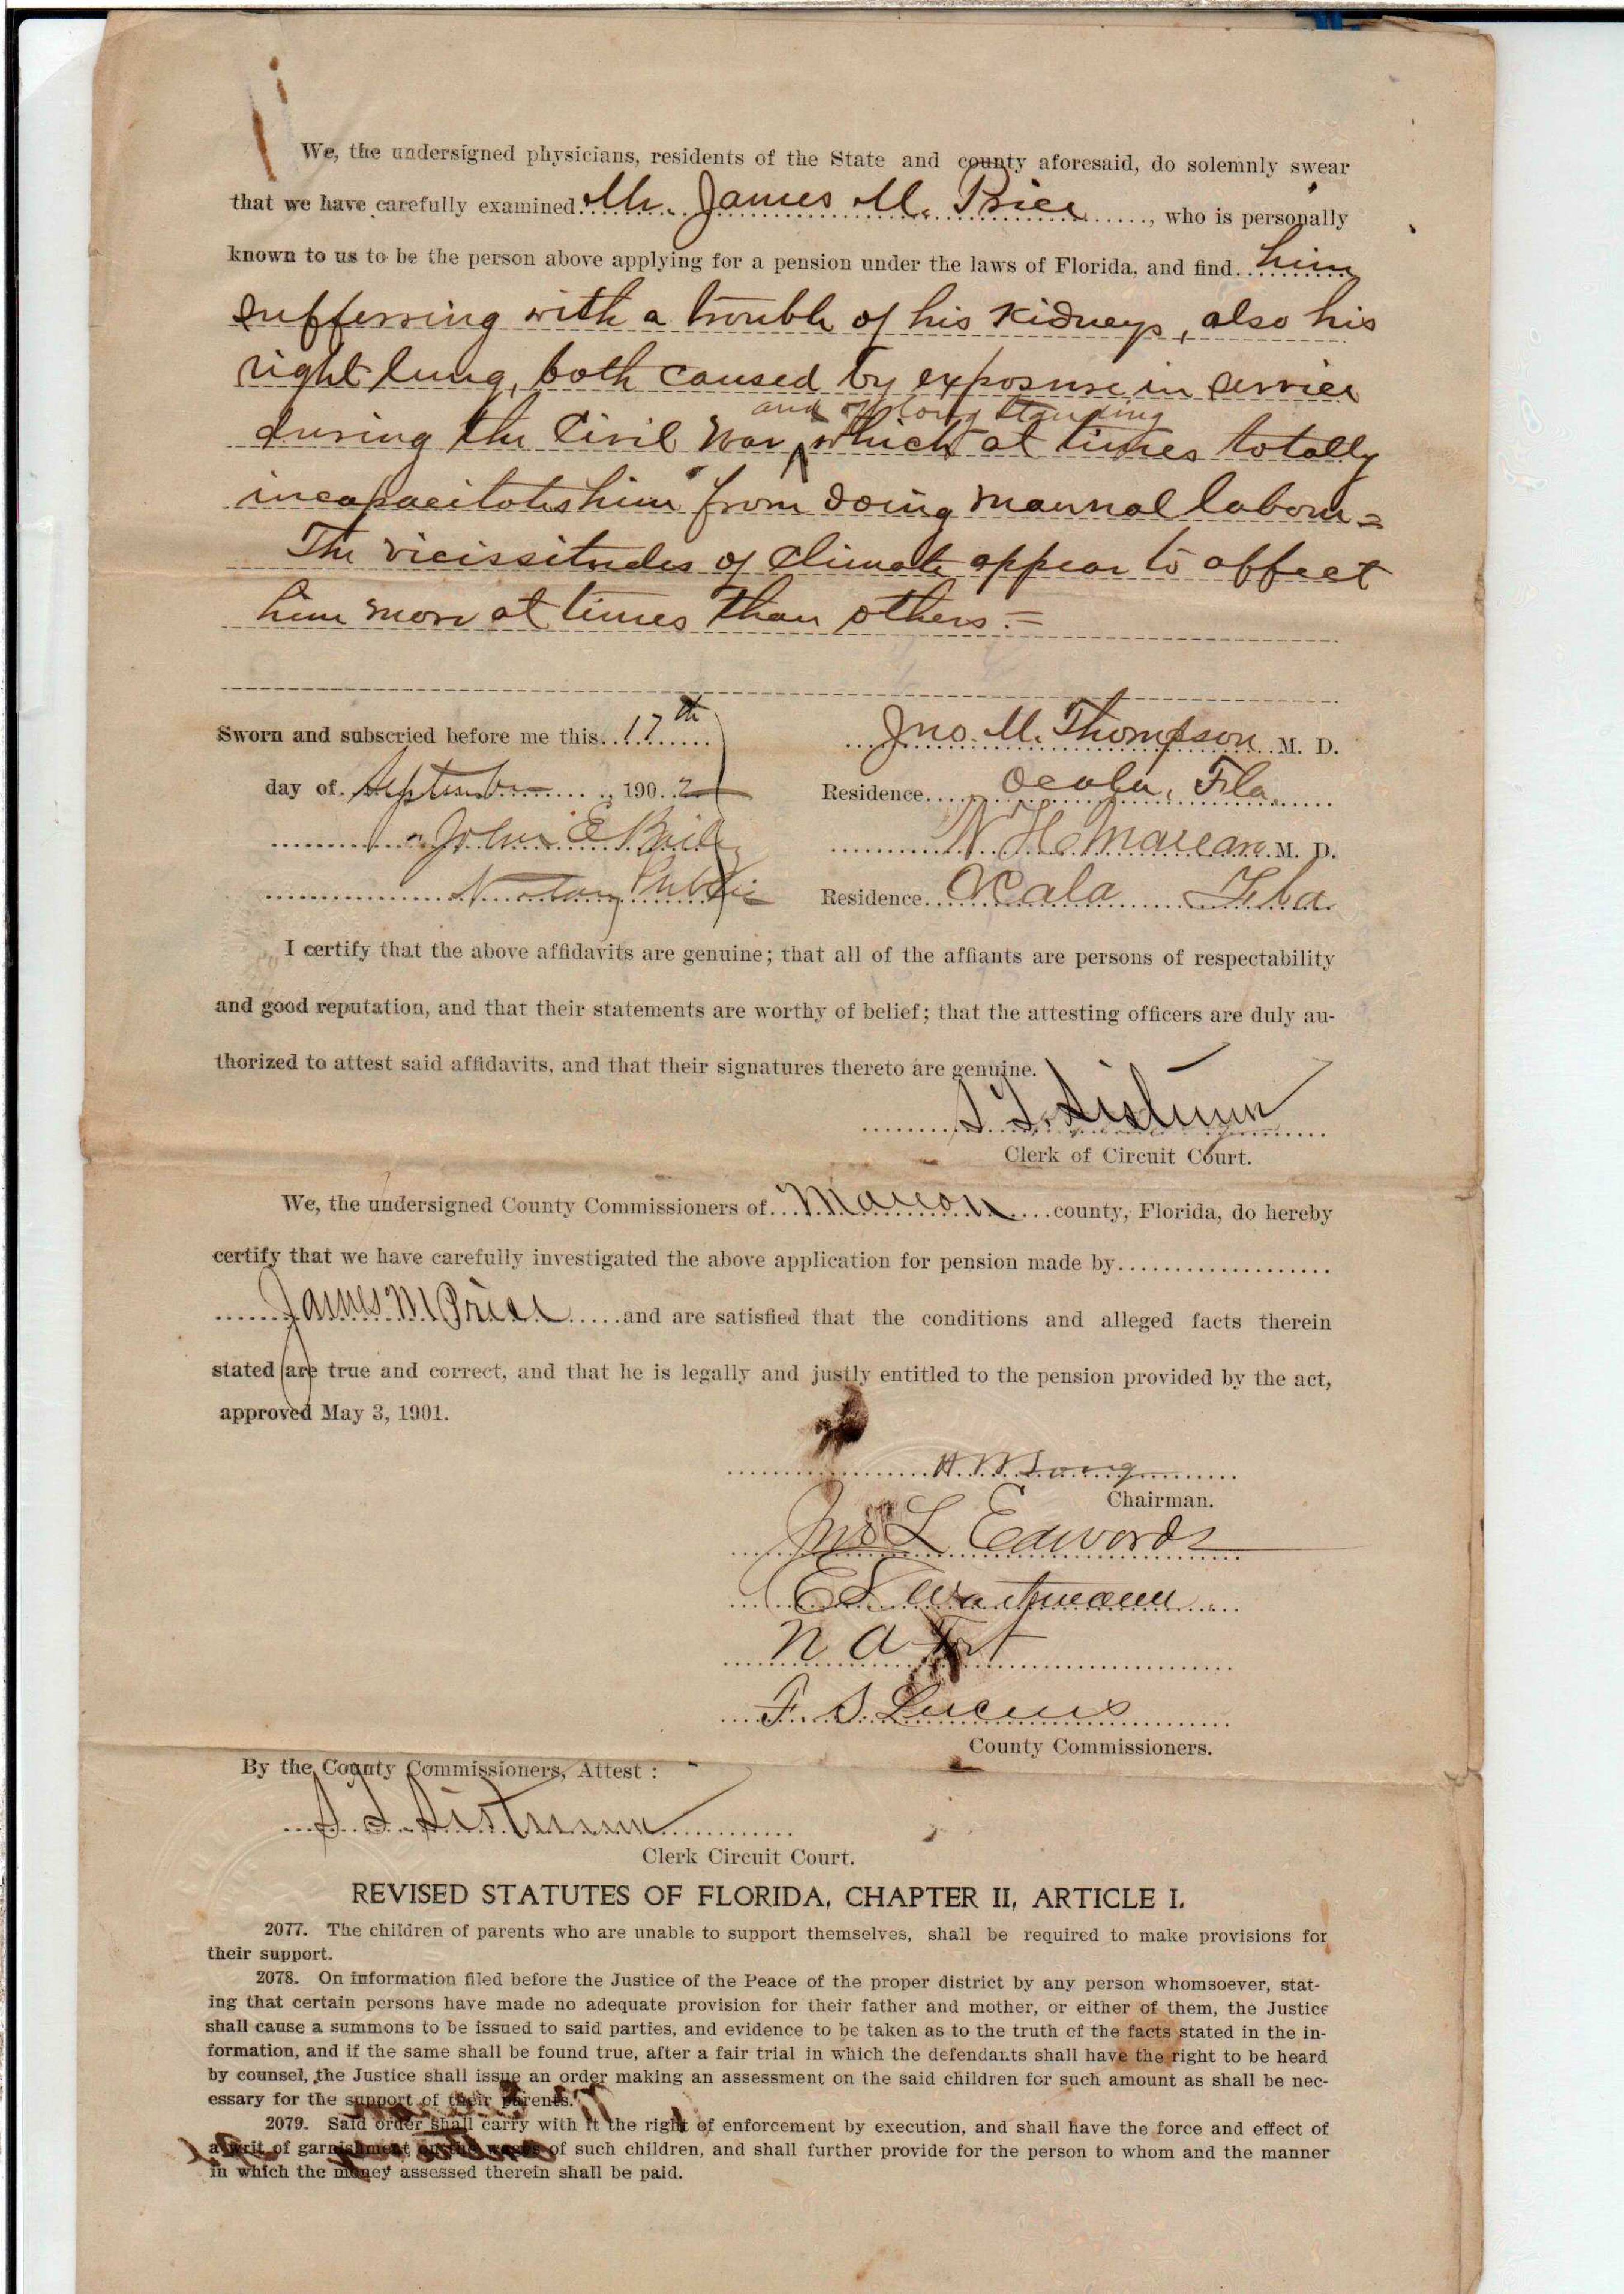 We, the undersigned physicians, residents of the State and county aforesaid, do solemnly swear
that we have carefully examined Mr. James M. Price, who is personally
known to us to be the person above applying for a pension under the laws of Florida, and find him
sufferring with a trouble of his Kidneys, also his
right lung, both caused by exposure in service
and of long standing
during the Civil War, which at times totally
incapacitates him from doing manual labour =
The vicissitudes of climate appear to affect
him more at times than others. =
Sworn and subscried before me this 17th
Jno. M. Thompson M. D.
day of September, 1902
Residence Ocala, Fla.
John E Baily
N. H. M. D.
Notary Public
Residence Ocala Fla
I certify that the above affidavits are genuine; that all of the affiants are persons of respectability
and good reputation, and that their statements are worthy of belief; that the attesting officers are duly au-
thorized to attest said affidavits, and that their signatures thereto are genuine.
S. T. Sistrunk
Clerk of Circuit Court.
We, the undersigned County Commissioners of Marion county, Florida, do hereby
certify that we have carefully investigated the above application for pension made by
James M Price and are satisfied that the conditions and alleged facts therein
stated are true and correct, and that he is legally and justly entitled to the pension provided by the act,
approved May 3, 1901.
H. W. Long
Chairman.
Jno L Edwards
E L Wartmann
N A Fort
F. S. Lucius
County Commissioners.
By the County Commissioners, Attest :
S. T. Sistrunk
Clerk Circuit Court.
REVISED STATUTES OF FLORIDA, CHAPTER II, ARTICLE I.
2077. The children of parents who are unable to support themselves, shall be required to make provisions for
their support.
2078. On information filed before the Justice of the Peace of the proper district by any person whomsoever, stat-
ing that certain persons have made no adequate provision for their father and mother, or either of them, the Justice
shall cause a summons to be issued to said parties, and evidence to be taken as to the truth of the facts stated in the in-
formation, and if the same shall be found true, after a fair trial in which the defendants shall have the right to be heard
by counsel, the Justice shall issue an order making an assessment on the said children for such amount as shall be nec-
essary for the support of their parents.
2079. Said order shall carry with it the right of enforcement by execution, and shall have the force and effect of
a writ of garnishment on the wages of such children, and shall further provide for the person to whom and the manner
in which the money assessed therein shall be paid.